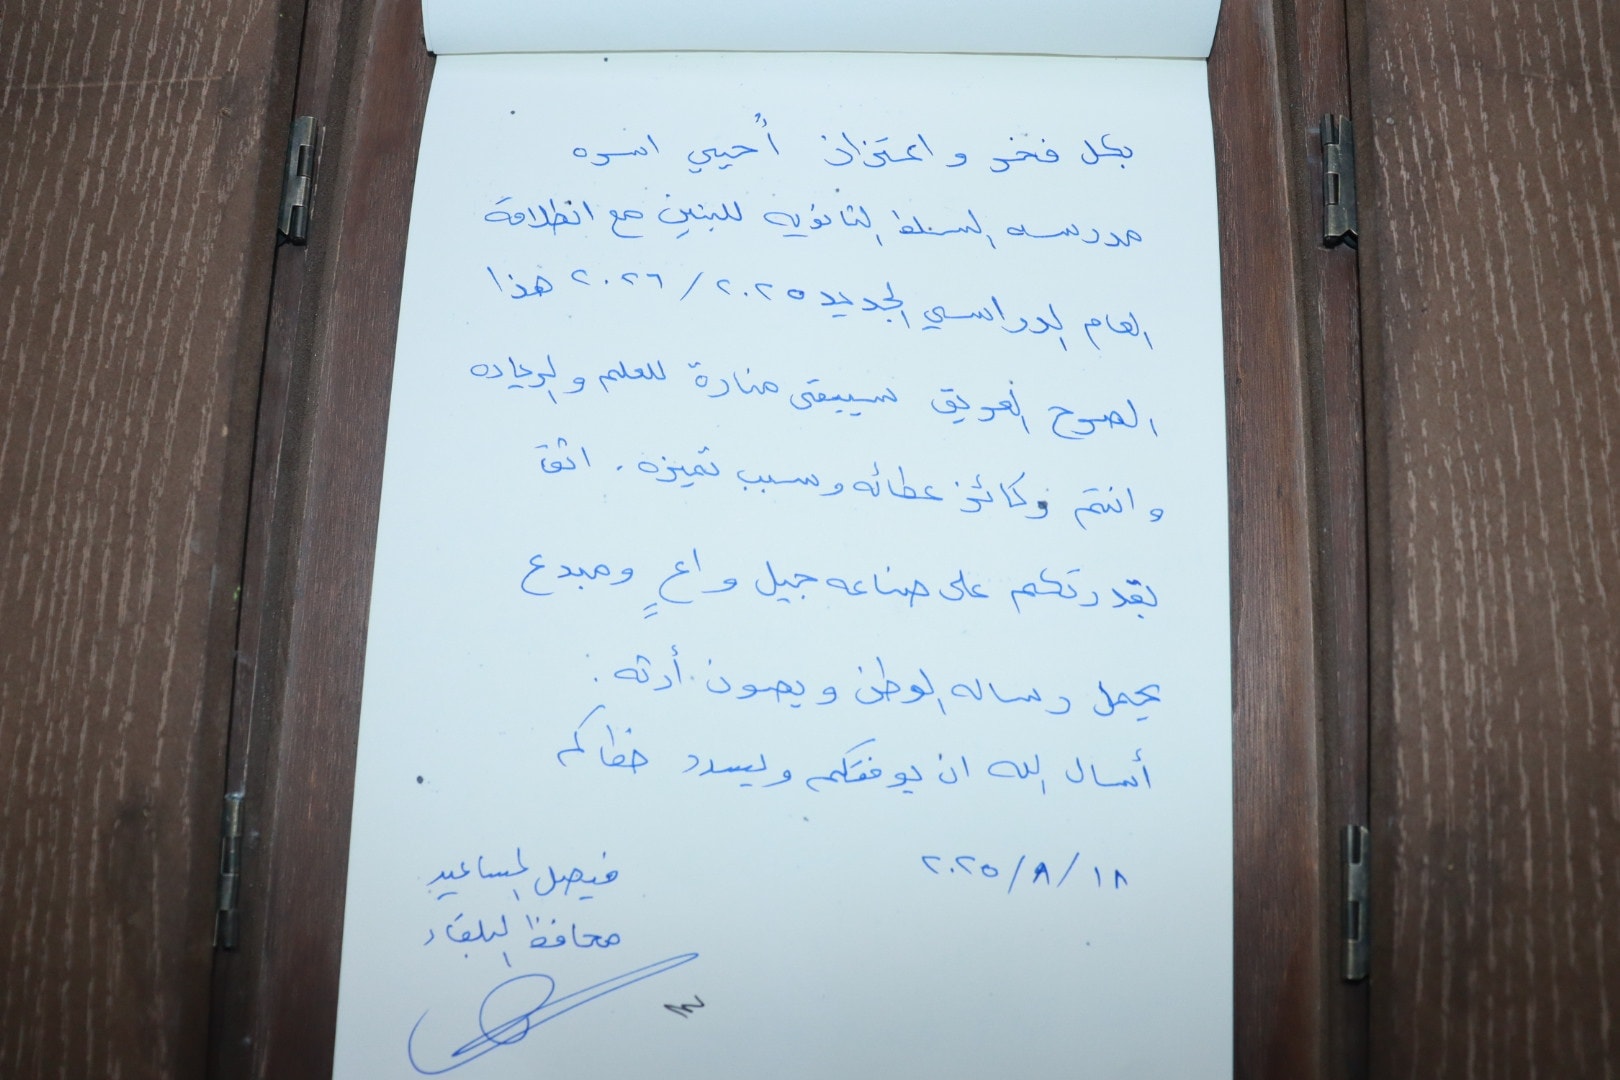 بكل فخر و اعتزاز أُحيي اسره
مدرسه السلط الثانويه للبنين مع انطلاقة
العام الدراسي الجديد ٢٠٢٥ / ٢٠٢٦ هذا
الصرح العريق سيبقى منارة للعلم والرياده
وانتم ركائز عطائه وسبب تميزه . اثق
بقدرتكم على صناعه جيل واعٍ ومبدع
يحمل رساله الوطن ويصون أرثه .
أسال الله ان يوفقكم ويسدد خطاكم
١٨ / ٨ / ٢٠٢٥
فيصل المساعيد
محافظ البلقاء